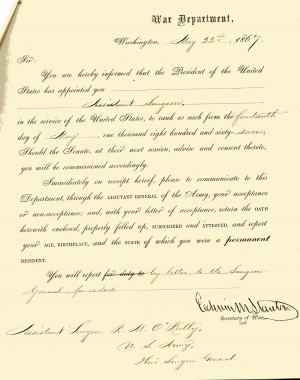 War Department,
Washington, May 22nd, 1867.
Sir:
You are hereby informed that the President of the United
States has appointed you
Assistant Surgeon,
in the service of the United States, to rank as such from the fourteenth
day of May, one thousand eight hundred and sixty-seven.
Should the Senate, at their next session, advise and consent thereto,
you will be commissioned accordingly.
Immediately on receipt hereof, please to communicate to this
Department, through the ADJUTANT GENERAL of the Army, your acceptance
or non-acceptance; and, with your letter of acceptance, return the OATH
herewith enclosed, properly filled up, SUBSCRIBED and ATTESTED, and report
your AGE, BIRTHPLACE, and the STATE of which you were a permanent
RESIDENT.
You will report for duty to by letter to the Surgeon
General for orders.
Edwin M Stanton
Secretary of War.
Assistant Surgeon R. M. O'Reilly,
U. S. Army,
Thro' Surgeon General.